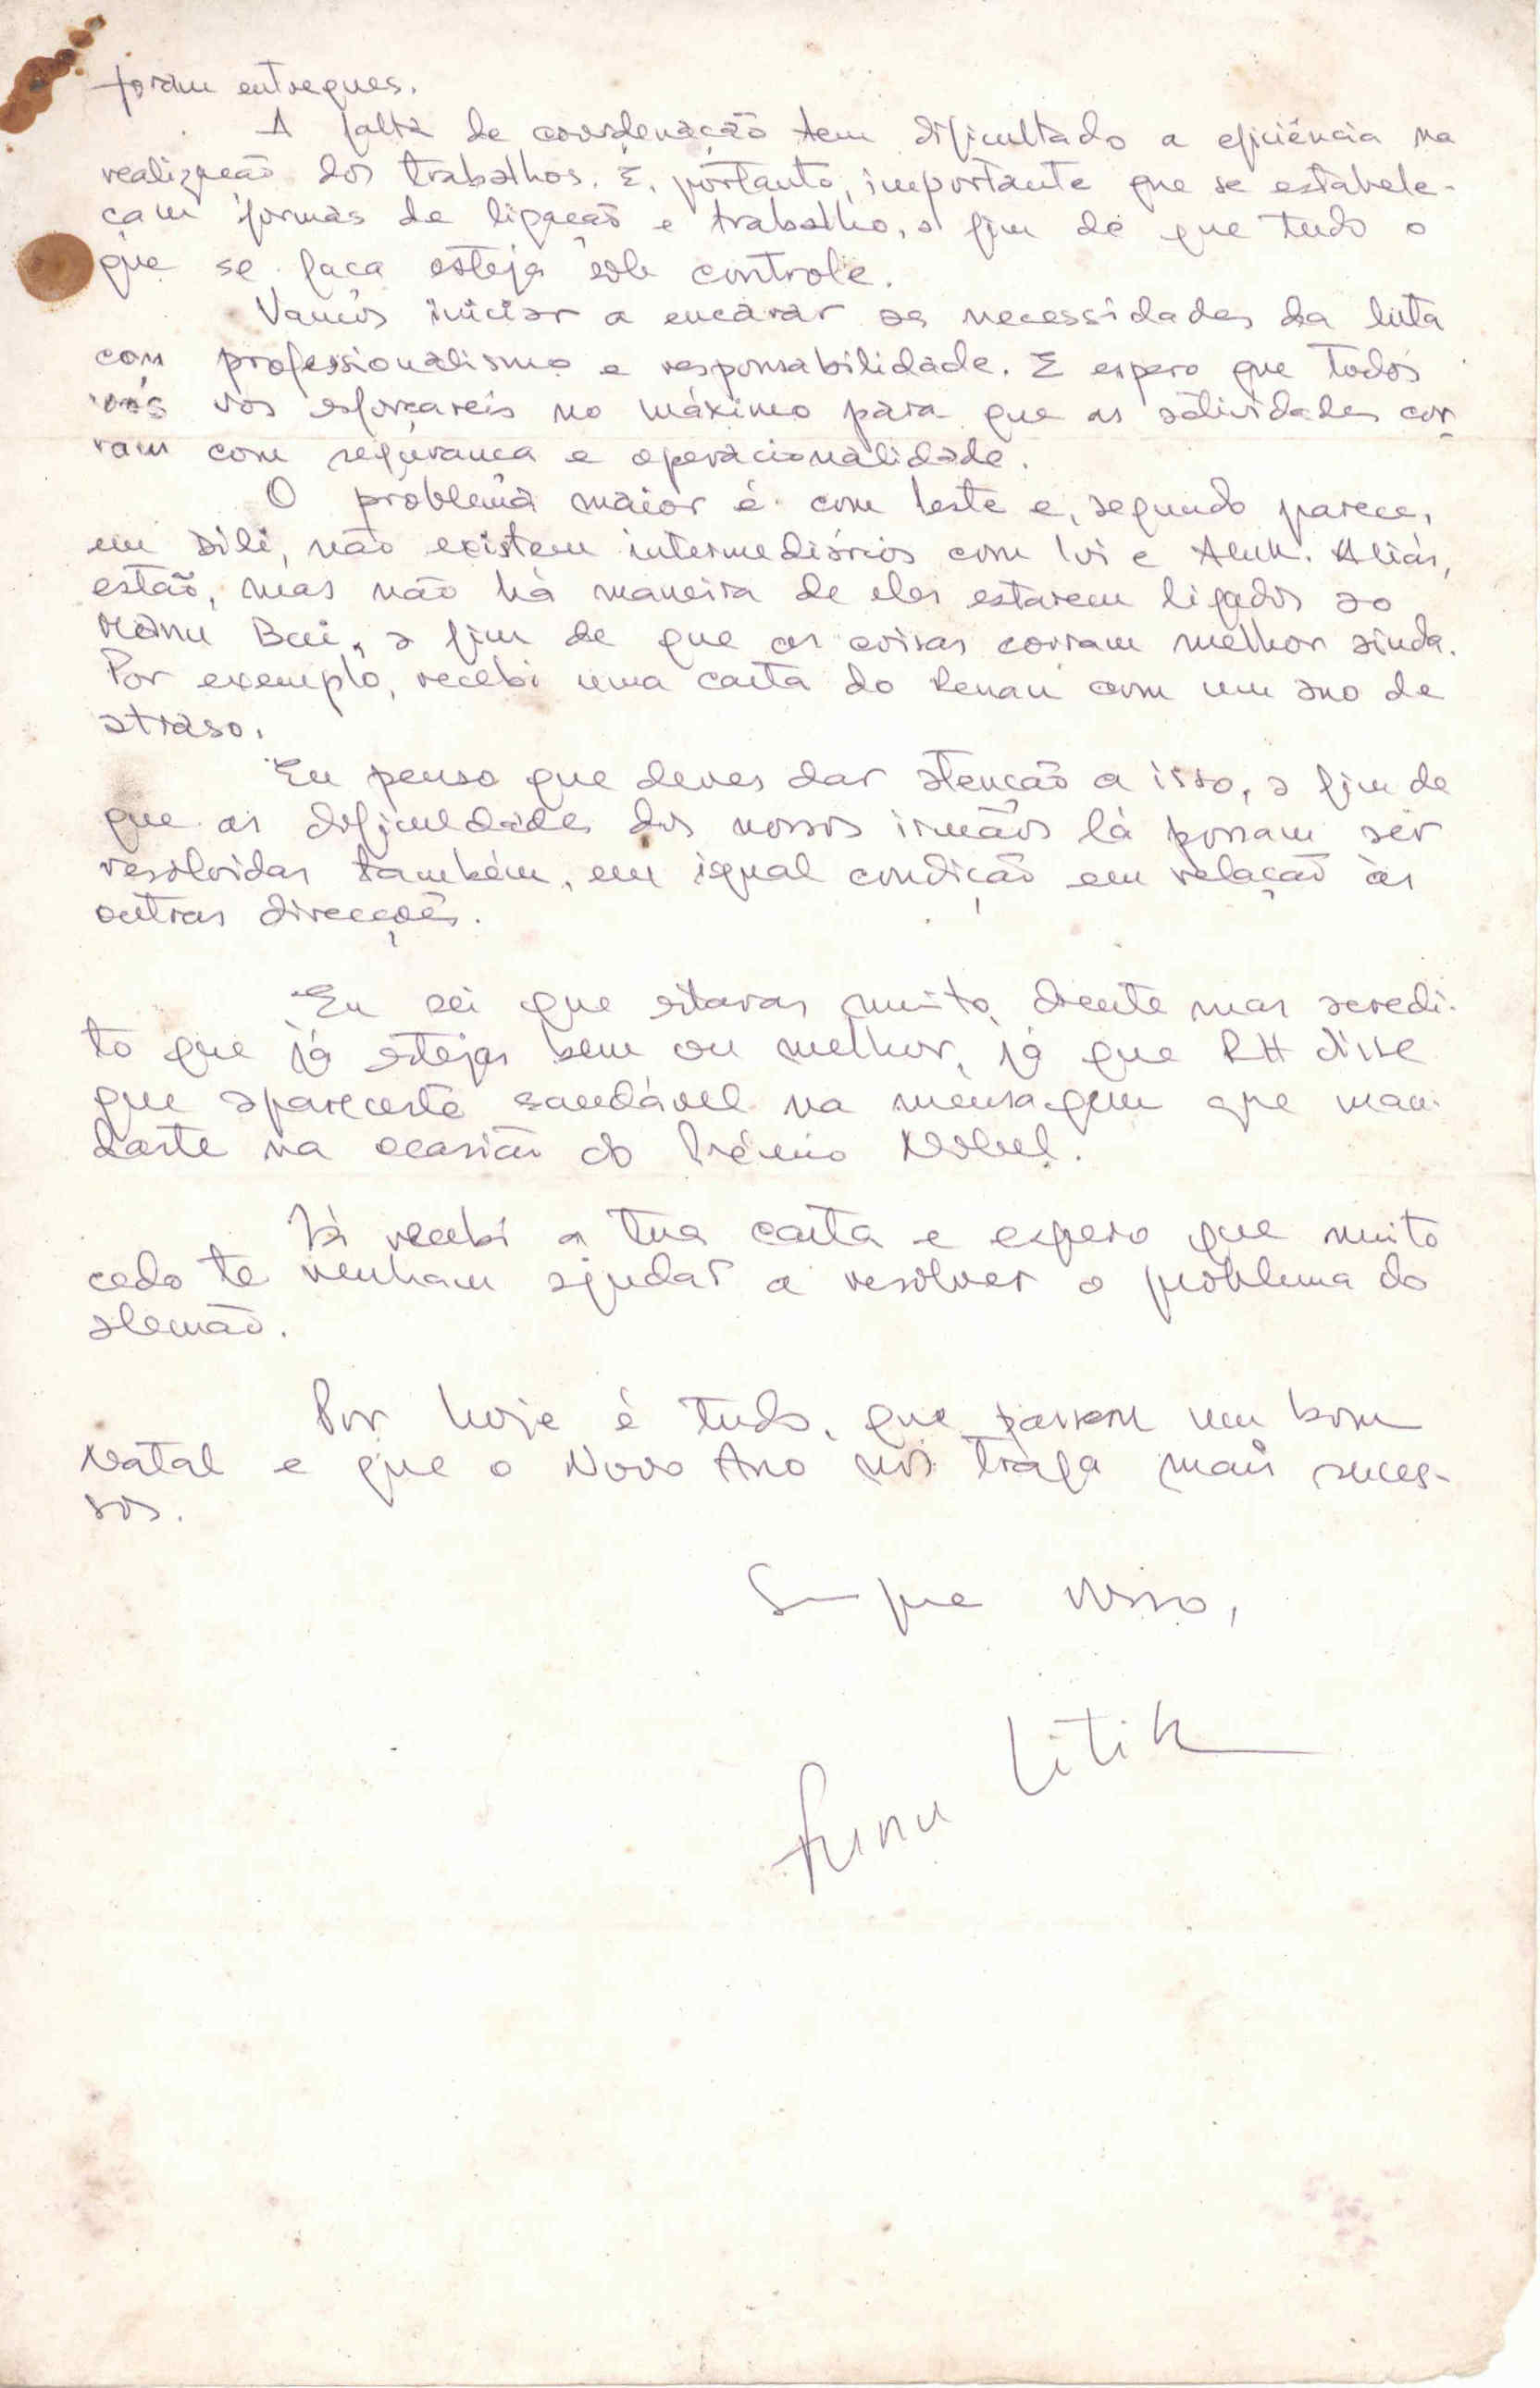 foram entregues.
A falta de coordenação tem dificultado a eficiência na
realização dos trabalhos. É, portanto, importante que se estabele-
çam formas de ligação e trabalho, a fim de que tudo o
que se faça esteja sob controle.
Vamos iniciar a encarar as necessidades da luta
com professionalismo e responsabilidade. E espero que todos
vós vos esforçareis no máximo para que as actividades cor-
ram com segurança e operacionalidade.
O problema maior é com leste e, segundo parece,
em Dili, não existem intermediários com e Aluk. Aliás,
estão, mas não há maneira de eles estarem ligados ao
Manu Bui, a fim de que as coisas corram melhor ainda.
Por exemplo, recebi uma carta do Renan com um ano de
atraso.
Eu penso que deves dar atenção a isso, a fim de
que as dificuldades dos nossos irmãos lá possam ser
resolvidas também, em igual condição em relação às
outras direcções.
Eu sei que estavas muito doente mas acredi-
to que já estejas bem ou melhor, já que RH disse
que apareceste saudável na mensagem que man-
daste na ocasião do Prémio Nobel.
Já recebi a tua carta e espero que muito
cedo te venham ajudar a resolver o problema do
alemão.
Por hoje é tudo, que passem um bom
Natal e que o Novo Ano nos traga mais suces-
sos.
Sempre vosso,
Funu Litik